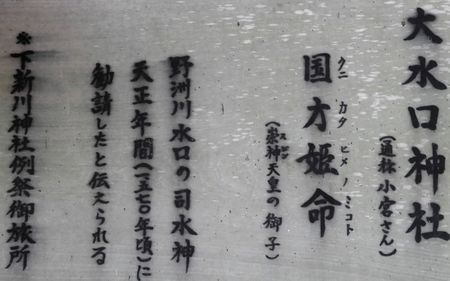 大水口神社
(通称小宮さん)
国才姫命
クニ カタ ヒメ ノ ミコト
(崇神天皇の御子)
スジン
野洲川水口の司水神
天正年間(一五七〇年頃)に
勧請したと伝えられる
※下新川神社例祭御旅所